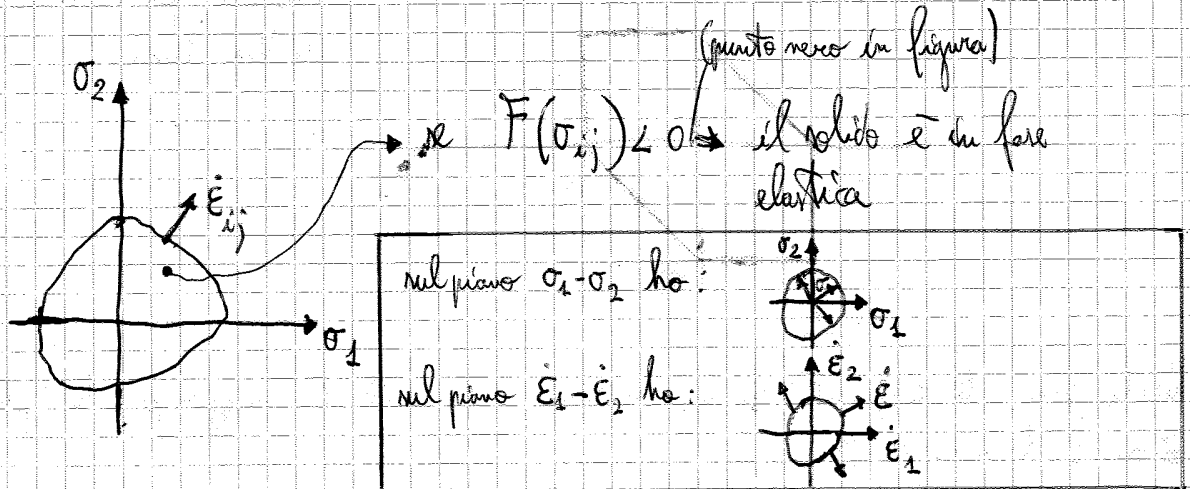 (punto nero in figura)
σ₂
∴ se F(σᵢⱼ) < 0 → il solido è in fase
elastica
ε̇ᵢⱼ
σ₁
sul piano σ₁-σ₂ ho:
σ₂
σ
σ₁
sul piano ε̇₁-ε̇₂ ho:
ε̇₂
ε̇
ε̇₁